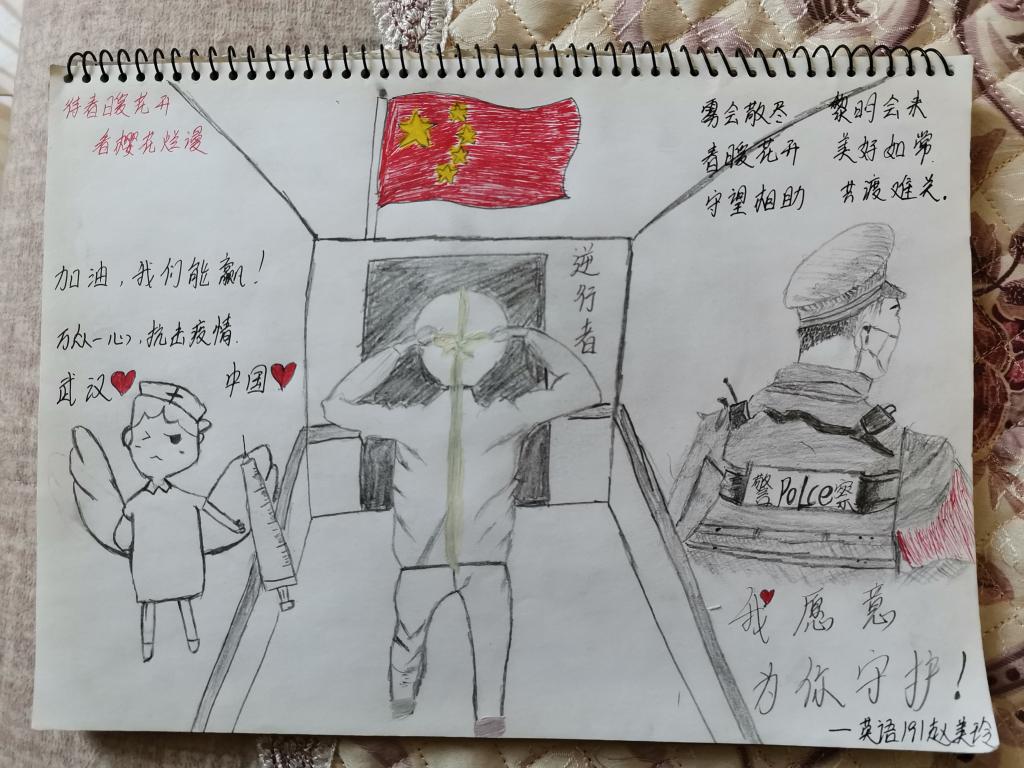 待春暖花开
看樱花烂漫
雾会散尽 黎明会来
春暖花开 美好如常.
守望相助 共渡难关.
加油,我们能赢!
万众一心,抗击疫情.
武汉 中国
逆行者
警 Polce 察
我愿意
为你守护!
—英语191赵美玲